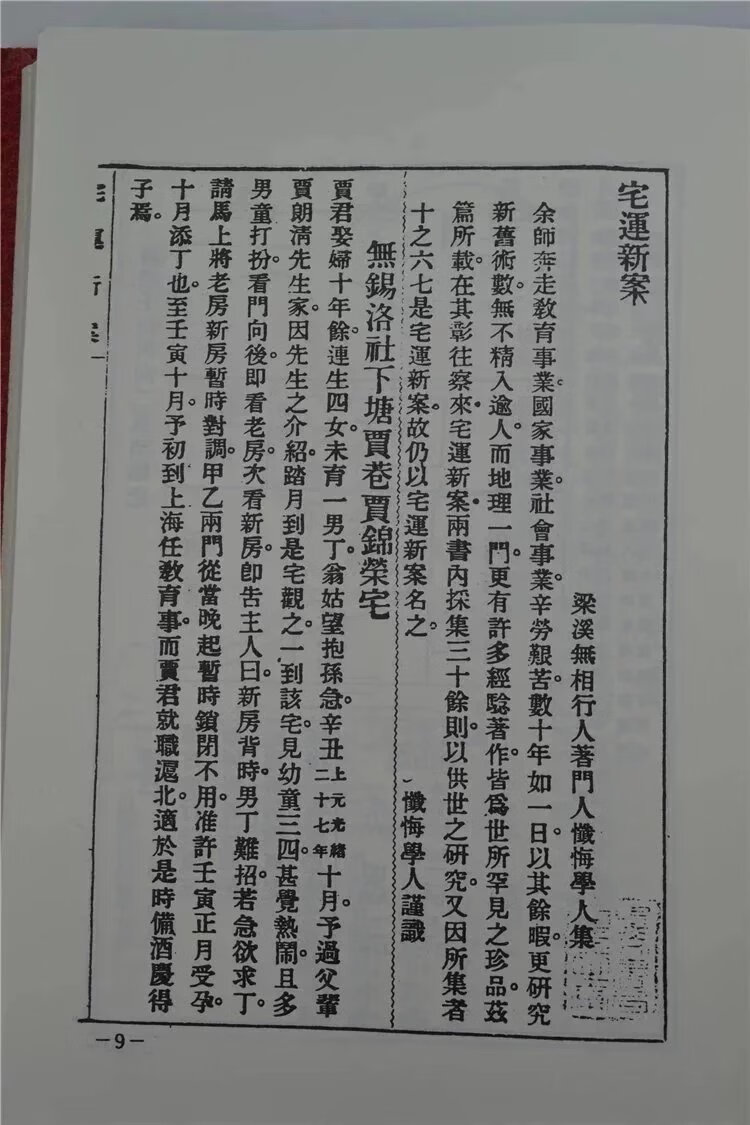 宅運新案
梁溪無相行人著門人懺悔學人集
余師奔走敎育事業。國家事業。社會事業。辛勞艱苦。數十年如一日。以其餘暇。更研究
新舊術數。無不精入逾人。而地理一門。更有許多經驗著作。皆爲世所罕見之珍品。茲
篇所載。在其彰往察來。宅運新案。兩書內採集三十餘則。以供世之研究。又因所集者
十之六七是宅運新案。故仍以宅運新案名之。
懺悔學人謹識
無錫洛社下塘賈巷賈錦榮宅
賈君娶婦十年餘。連生四女。未育一男丁。翁姑望抱孫急。辛丑上元光緒二十七年十月。予過父輩
賈朗淸先生家。因先生之介紹。踏月到是宅觀之。一到該宅。見幼童三四。甚覺熱鬧。且多
男童打扮。看門向後。即看老房。次看新房。卽告主人曰。新房背時。男丁難招。若急欲求丁。
請馬上將老房新房暫時對調。甲乙兩門從當晚起暫時鎖閉不用。准許壬寅正月受孕。
十月添丁也。至壬寅十月。予初到上海任敎育事。而賈君就職滬北。適於是時備酒慶得
子焉。
—9—